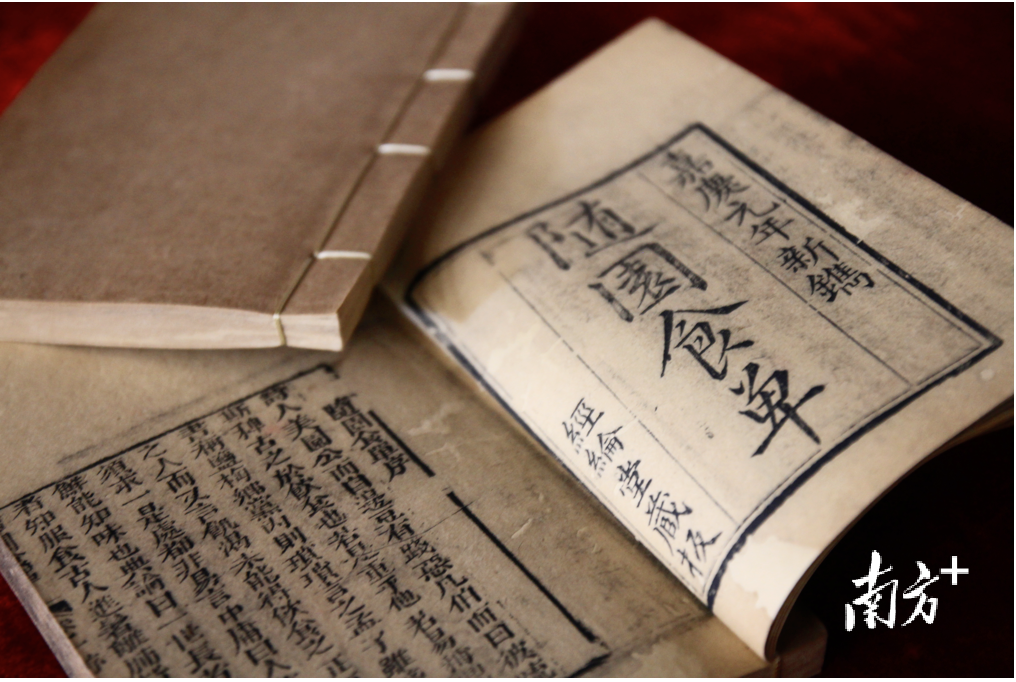 嘉慶元年新鐫
随園食单
經綸堂藏板
隨園食單序
詩人美周公而曰籩豆有踐惡凡伯而曰彼疏
斯稗古之於飲食也若是重乎他若易稱
書稱鹽梅鄉黨内則瑣瑣言之孟子雖
之人而又言飢渴未能得飲食之正
須求一是處都非易言中庸曰人
鮮能知味也典論曰一世長者
知服食古人進鬐離肺
南方+